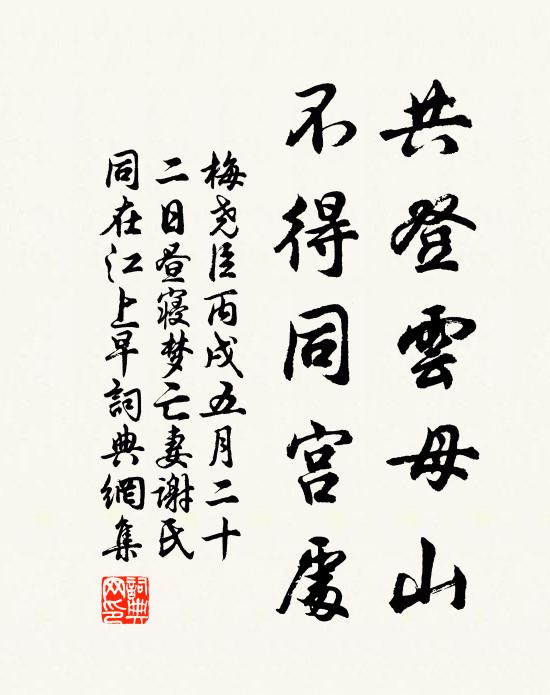 共登雲母山
不得同宫處
梅尧臣丙戌五月二十
二日昼寝梦亡妻谢氏
同在江上早詞典網集
詞典
网印